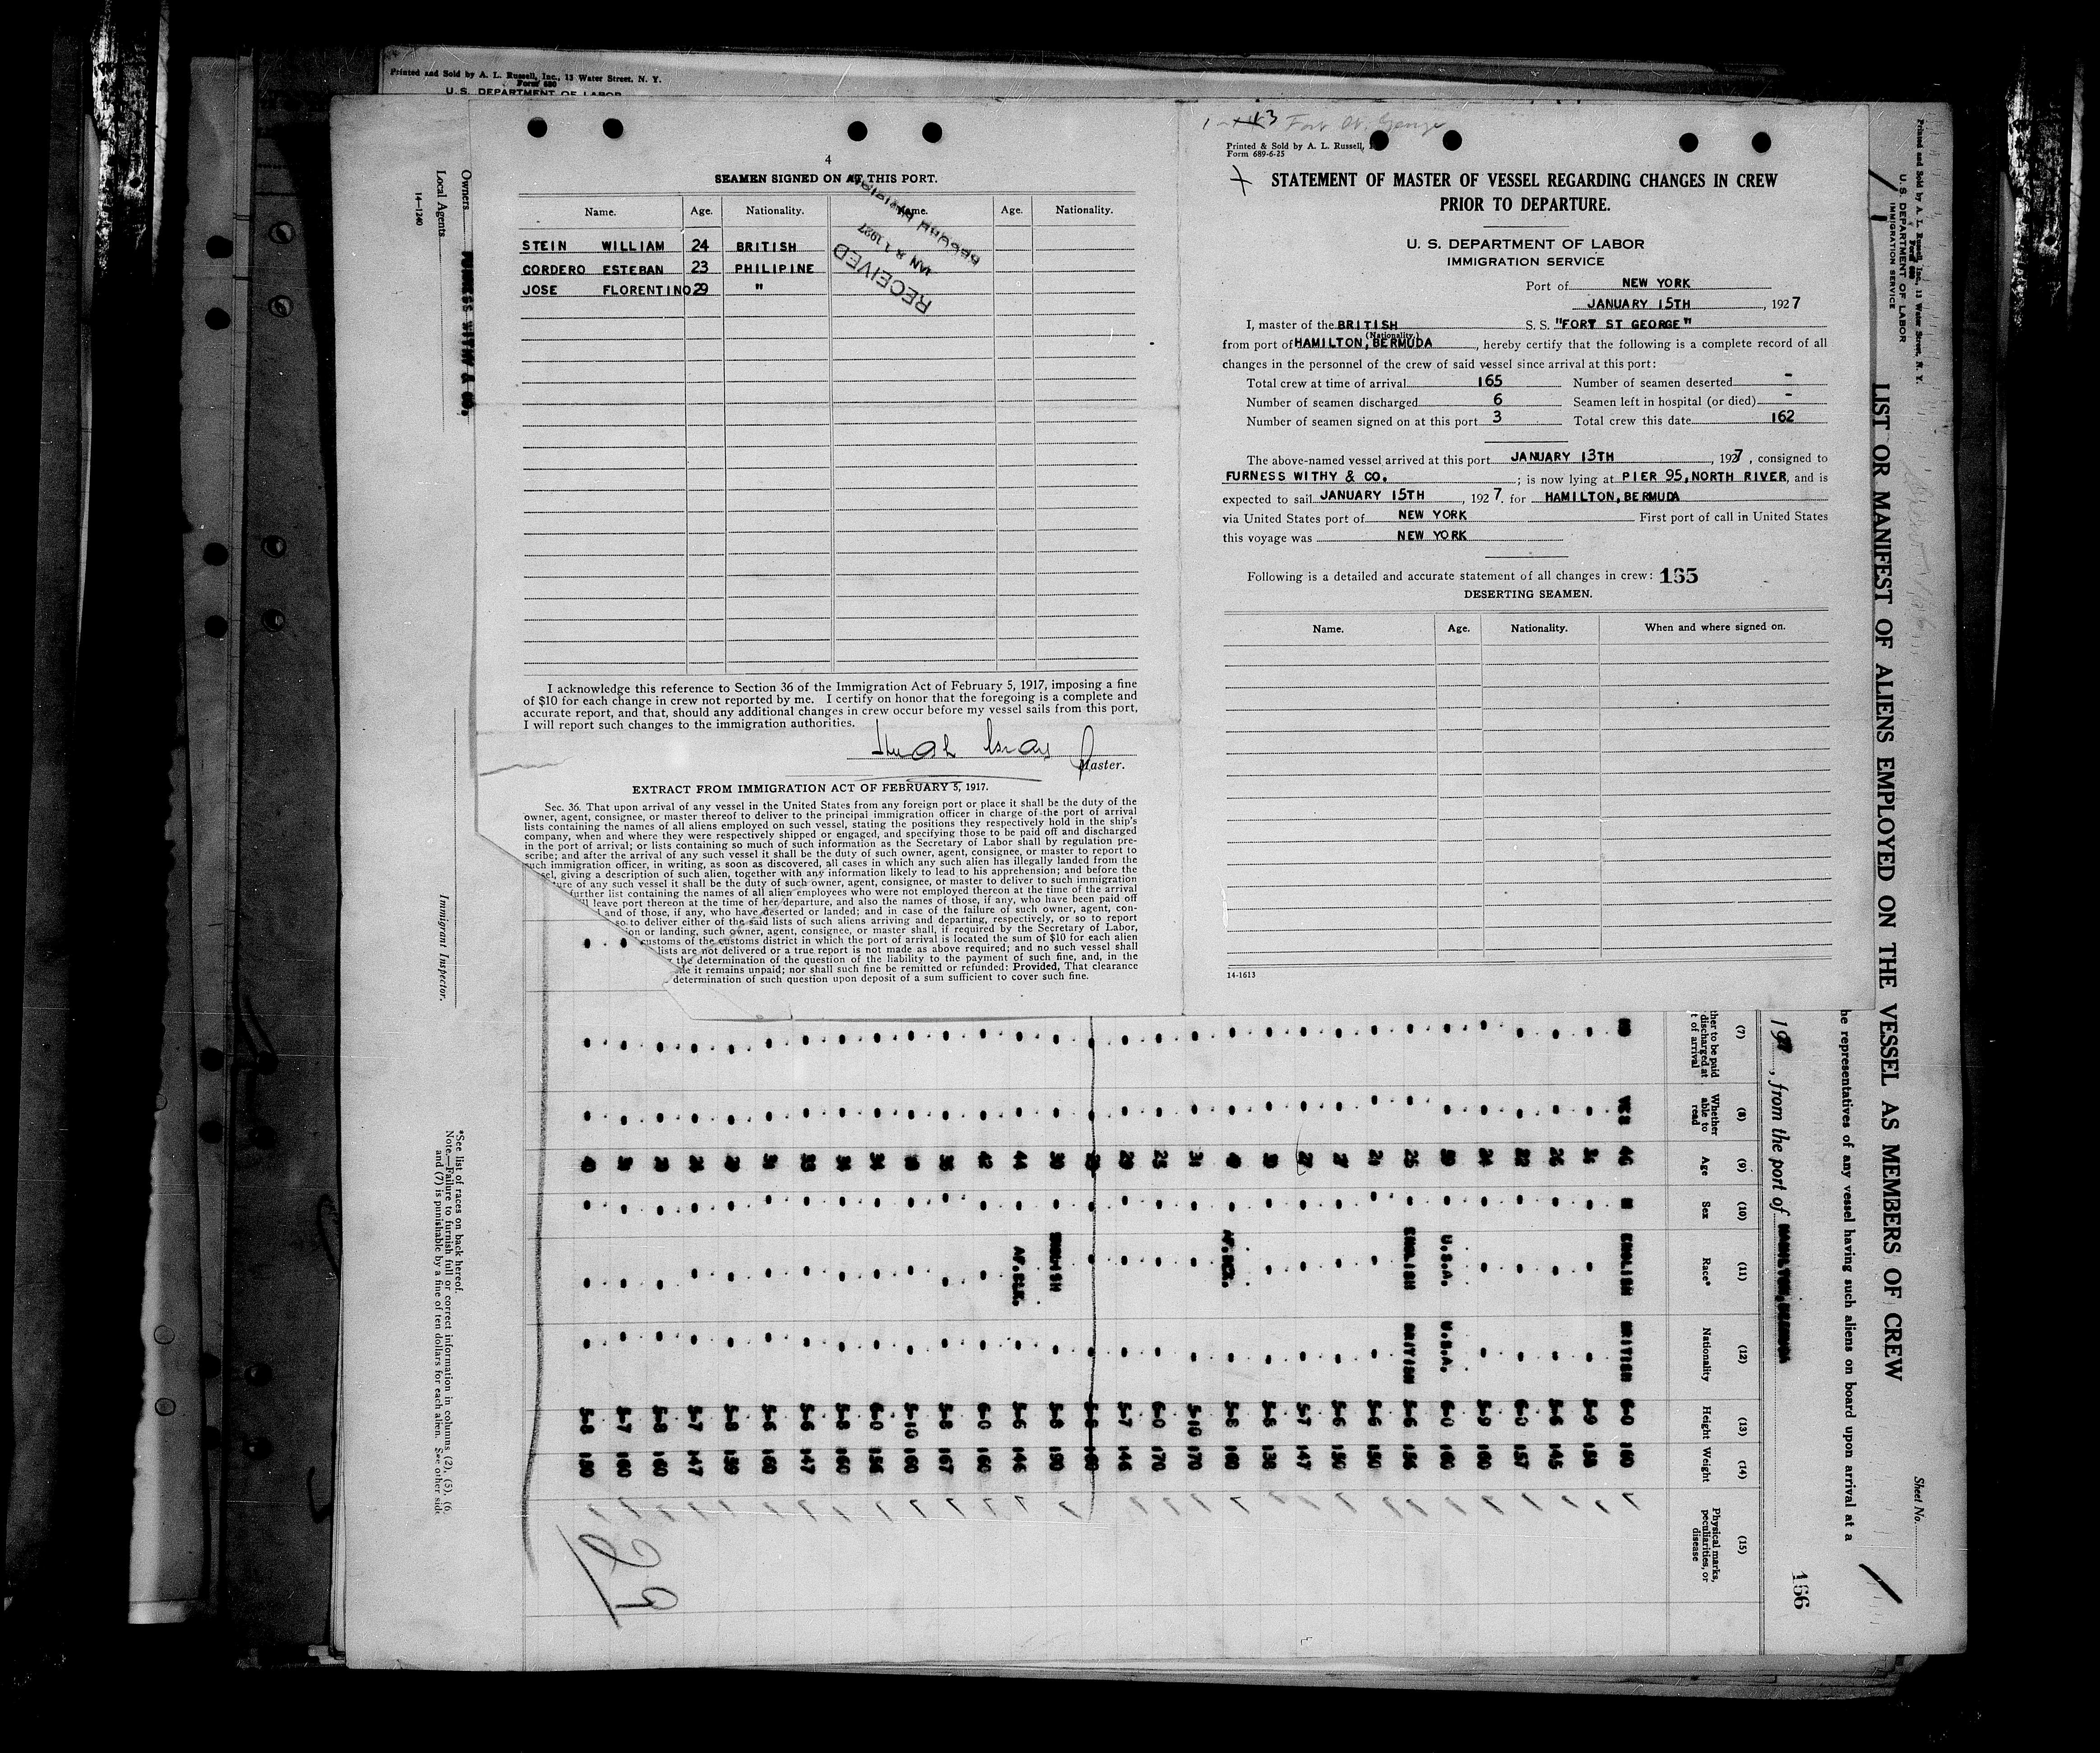 Printed and Sold by A. L. Russell, Inc., 13 Water Street, N. Y.
Form 680
U. S. DEPARTMENT OF LABOR
4
SEAMEN SIGNED ON AT THIS PORT.
Name. Age. Nationality. Name. Age. Nationality.
STEIN WILLIAM 24 BRITISH
CORDERO ESTEBAN 23 PHILIPINE
JOSE FLORENTINO 29 "
RECEIVED
I acknowledge this reference to Section 36 of the Immigration Act of February 5, 1917, imposing a fine
of $10 for each change in crew not reported by me. I certify on honor that the foregoing is a complete and
accurate report, and that, should any additional changes in crew occur before my vessel sails from this port,
I will report such changes to the immigration authorities.
Master.
EXTRACT FROM IMMIGRATION ACT OF FEBRUARY 5, 1917.
Sec. 36. That upon arrival of any vessel in the United States from any foreign port or place it shall be the duty of the
owner, agent, consignee, or master thereof to deliver to the principal immigration officer in charge of the port of arrival
lists containing the names of all aliens employed on such vessel, stating the positions they respectively hold in the ship's
company, when and where they were respectively shipped or engaged, and specifying those to be paid off and discharged
in the port of arrival; or lists containing so much of such information as the Secretary of Labor shall by regulation pre-
scribe; and after the arrival of any such vessel it shall be the duty of such owner, agent, consignee, or master to report to
such immigration officer, in writing, as soon as discovered, all cases in which any such alien has illegally landed from the
sel, giving a description of such alien, together with any information likely to lead to his apprehension; and before the
ture of any such vessel it shall be the duty of such owner, agent, consignee, or master to deliver to such immigration
further list containing the names of all alien employees who were not employed thereon at the time of the arrival
ill leave port thereon at the time of her departure, and also the names of those, if any, who have been paid off
and of those, if any, who have deserted or landed; and in case of the failure of such owner, agent, con-
so to deliver either of the said lists of such aliens arriving and departing, respectively, or so to report
ion or landing, such owner, agent, consignee, or master shall, if required by the Secretary of Labor,
customs of the customs district in which the port of arrival is located the sum of $10 for each alien
lists are not delivered or a true report is not made as above required; and no such vessel shall
the determination of the question of the liability to the payment of such fine, and, in the
le it remains unpaid; nor shall such fine be remitted or refunded: Provided, That clearance
determination of such question upon deposit of a sum sufficient to cover such fine.
Fort St. George
Printed & Sold by A. L. Russell,
Form 689-6-25
STATEMENT OF MASTER OF VESSEL REGARDING CHANGES IN CREW
PRIOR TO DEPARTURE.
U. S. DEPARTMENT OF LABOR
IMMIGRATION SERVICE
Port of NEW YORK
JANUARY 15TH, 1927
I, master of the BRITISH S. S. "FORT ST GEORGE"
(Nationality)
from port of HAMILTON, BERMUDA, hereby certify that the following is a complete record of all
changes in the personnel of the crew of said vessel since arrival at this port:
Total crew at time of arrival 165 Number of seamen deserted -
Number of seamen discharged 6 Seamen left in hospital (or died) -
Number of seamen signed on at this port 3 Total crew this date 162
The above-named vessel arrived at this port JANUARY 13TH, 1927, consigned to
FURNESS WITHY & CO. ; is now lying at PIER 95, NORTH RIVER, and is
expected to sail JANUARY 15TH, 1927. for HAMILTON, BERMUDA
via United States port of NEW YORK First port of call in United States
this voyage was NEW YORK
Following is a detailed and accurate statement of all changes in crew: 165
DESERTING SEAMEN.
Name. Age. Nationality. When and where signed on.
14-1613
Printed and Sold by A. L. Russell, Inc., 13 Water Street, N. Y.
Form 680
U. S. DEPARTMENT OF LABOR
IMMIGRATION SERVICE
Sheet No.
LIST OR MANIFEST OF ALIENS EMPLOYED ON THE VESSEL AS MEMBERS OF CREW
he representatives of any vessel having such aliens on board upon arrival at a
166
, from the port of HAMILTON, BERMUDA
(7) (8) (9) (10) (11) (12) (13) (14) (15)
ther to be paid discharged at t of arrival
Whether able to read
Age
Sex
Race*
Nationality
Height
Weight
Physical marks, peculiarities, or disease
YES 46 ENGLISH BRITISH 6-0 160
5-9 158
26 5-6 145
22 6-0 157
24 5-9 160
U.S.A. U.S.A. 6-0 160
25 ENGLISH BRITISH 5-6 156
5-6 150
5-6 150
27 5-7 147
5-8 138
5-8 160
31 5-10 170
25 6-0 170
5-7 146
30 ENGLISH 5-8 190
44 AF.BLK. 5-6 146
42 6-0 160
5-8 167
5-10 160
34 6-0 156
5-8 160
5-6 147
5-6 160
5-8 139
5-7 147
5-8 160
5-7 160
5-8 150
Owners FURNESS WITHY & CO.
Local Agents
14-1240
Immigrant Inspector.
*See list of races on back hereof.
Note.—Failure to furnish full or correct information in columns (2), (5), (6
and (7) is punishable by a fine of ten dollars for each alien. See other sid